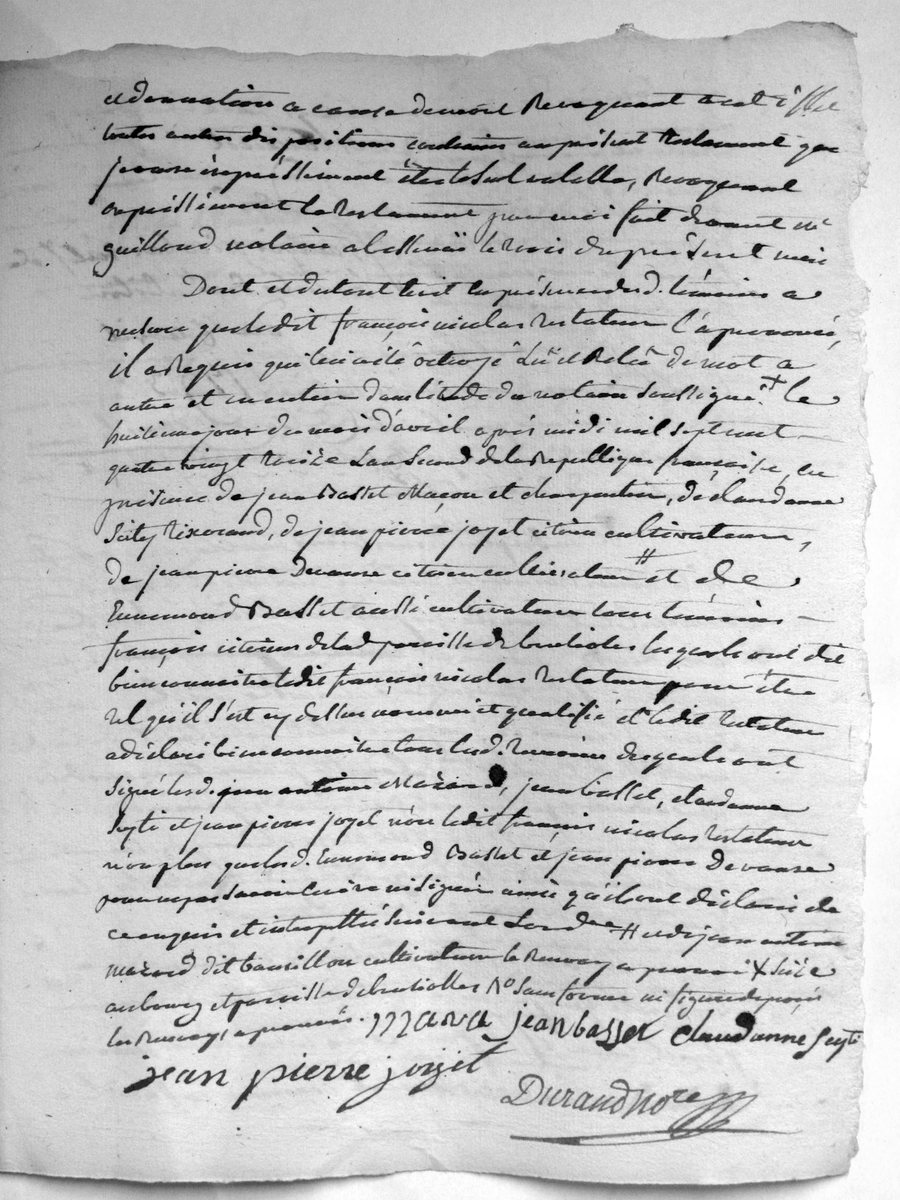 et donnation a cause de mort Revoquant a cet effet
toutes autres dispositions contraires au présent testament que
je veux expressément être le seul valable, Revoquant
expressément le testament par moi fait devant me
guilloud notaire a le mois du présent mois
Dont et du tout lu et en présence desd. témoins a
mesure que ledit françois nicolas testateur l'a prononcé,
il a Requis qui lui a été octroyé Lu et Relu de mot a
autre et en entier dans l'étude du notaire soussigné + le
huitieme jour du mois d'avril après midi mil sept cent
quatre vingt treize L'an second de la Republique française, en
présence de jean Basset Maçon et charpentier, de claudanne
Seity tixerand, de jean pierre joyet citoien cultivateur,
de jean pierre Devanse citoien cultivateur # et de
Ennemond Basset aussi cultivateur tous témoins
françois citoiens de lad. paroisse de brotiolles lesquels ont dit
bien connoitre ledit françois nicolas testateur pour être
tel qu'il s'est cy dessus nommé et qualifié et ledit testateur
a déclaré bien connoitre tous lesd. temoins desquels ont
signé lesd. jean antoine Mazard, jean basset, claudanne
Seyti et jean pierre joyet non ledit françois nicolas testateur
non plus que lesd. Ennemond Basset et jean pierre Devanse
pour ne pas savoir écrire ni signer ainsi qu'ils ont déclaré de
ce enquis et interpellés suivant L'ord.ce # et de jean antoine
mazard dit cultivateur le Renvoy approuvé + scize
au bourg et paroisse de brotiolles No
les Renvoys approuvés. Mazard jean basset claudanne seyti
jean pierre joyet
Durand nore